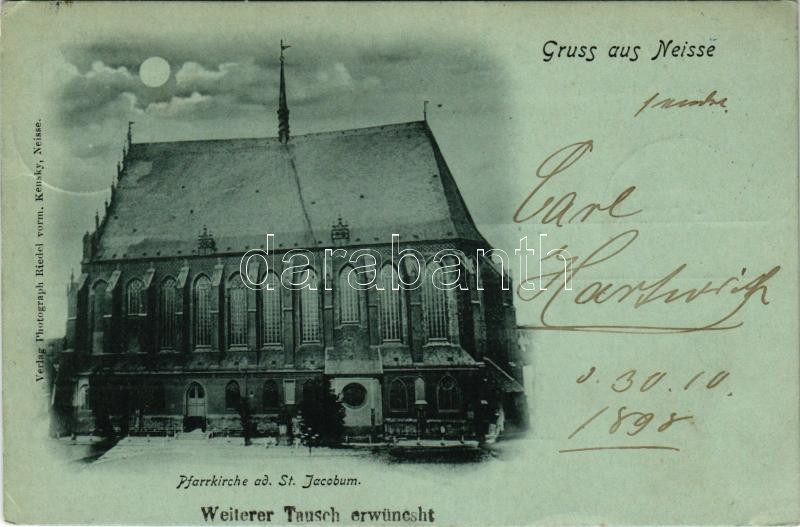 Gruss aus Neisse
Carl
Hartwich
d. 30. 10
1898
Verlag Photograph Riedel vorm. Kensky, Neisse.
darabanth
Pfarrkirche ad. St. Jacobum.
Weiterer Tausch erwünscht